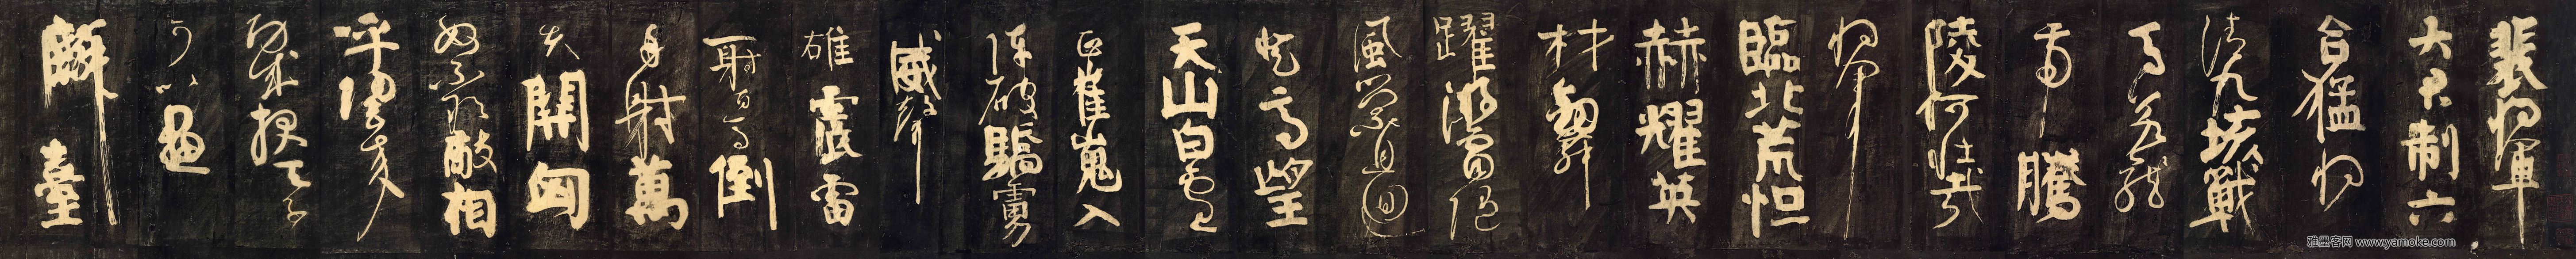 裴將軍
大君制六
合猛將
清九垓戰
馬若龍
虎騰
陵何壯哉
將軍
臨北荒烜
赫耀英
材劒舞
躍游電隨
風縈且迴
登高望
天山白雲
正崔嵬入
陣破驕虜
威聲
雄震雷
一射百馬倒
再射萬
夫開匈
奴不敢敵相
呼歸去來
功成報天子
可以畫
麟臺
雅墨客网 www.yamoke.com